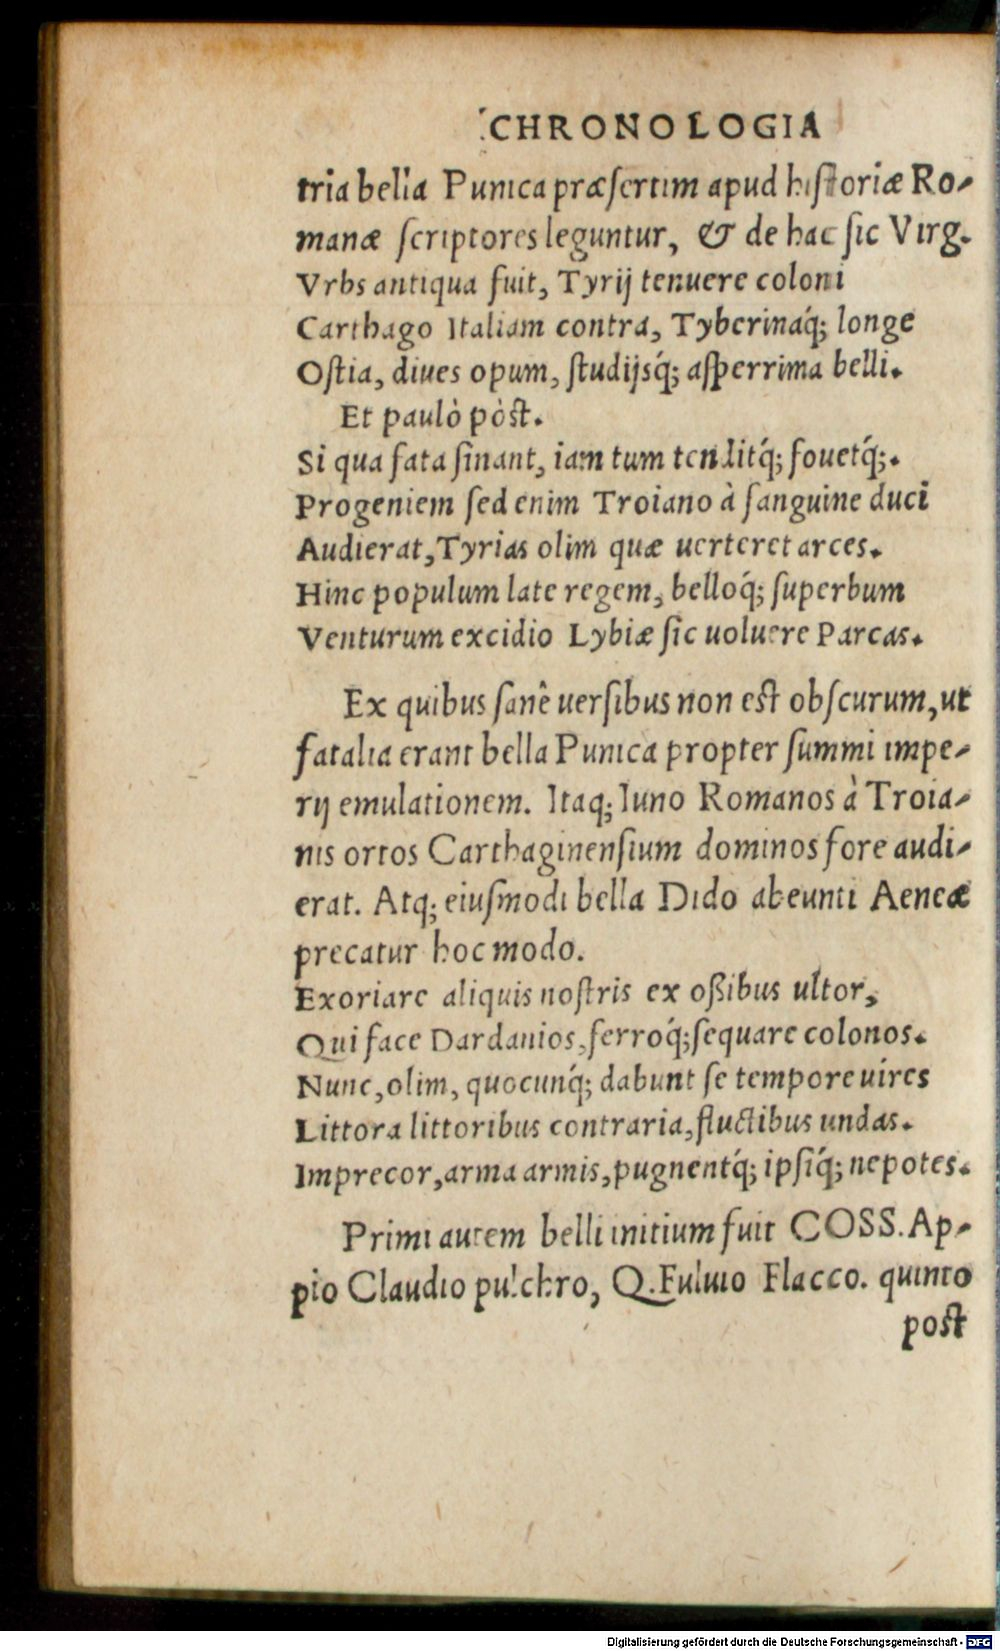 CHRONOLOGIA
tria bella Punica præſertim apud hiſtoriæ Ro-
manæ ſcriptores leguntur, & de hac ſic Virg.
Vrbs antiqua fuit, Tyrij tenuere coloni
Carthago Italiam contra, Tyberinaq́; longe
Oſtia, diues opum, ſtudijsq́; aſperrima belli.
Et paulò pòſt.
Si qua fata ſinant, iam tum tenditq́; fouetq́;.
Progeniem ſed enim Troiano à ſanguine duci
Audierat, Tyrias olim quæ uerteret arces.
Hinc populum late regem, belloq́; ſuperbum
Venturum excidio Lybiæ ſic uoluere Parcas.
Ex quibus ſanê uerſibus non eſt obſcurum, ut
fatalia erant bella Punica propter ſummi impe-
rij emulationem. Itaq; Iuno Romanos à Troia-
nis ortos Carthaginenſium dominos fore audi-
erat. Atq; eiuſmodi bella Dido abeunti Aeneæ
precatur hoc modo.
Exoriare aliquis noſtris ex oßibus ultor,
Qui face Dardanios, ferroq́; ſequare colonos.
Nunc, olim, quocunq́; dabunt ſe tempore uires
Littora littoribus contraria, fluctibus undas.
Imprecor, arma armis, pugnentq́; ipſiq́; nepotes.
Primi autem belli initium fuit COSS. Ap-
pio Claudio pulchro, Q. Fuluio Flacco. quinto
poſt
Digitalisierung gefördert durch die Deutsche Forschungsgemeinschaft - DFG